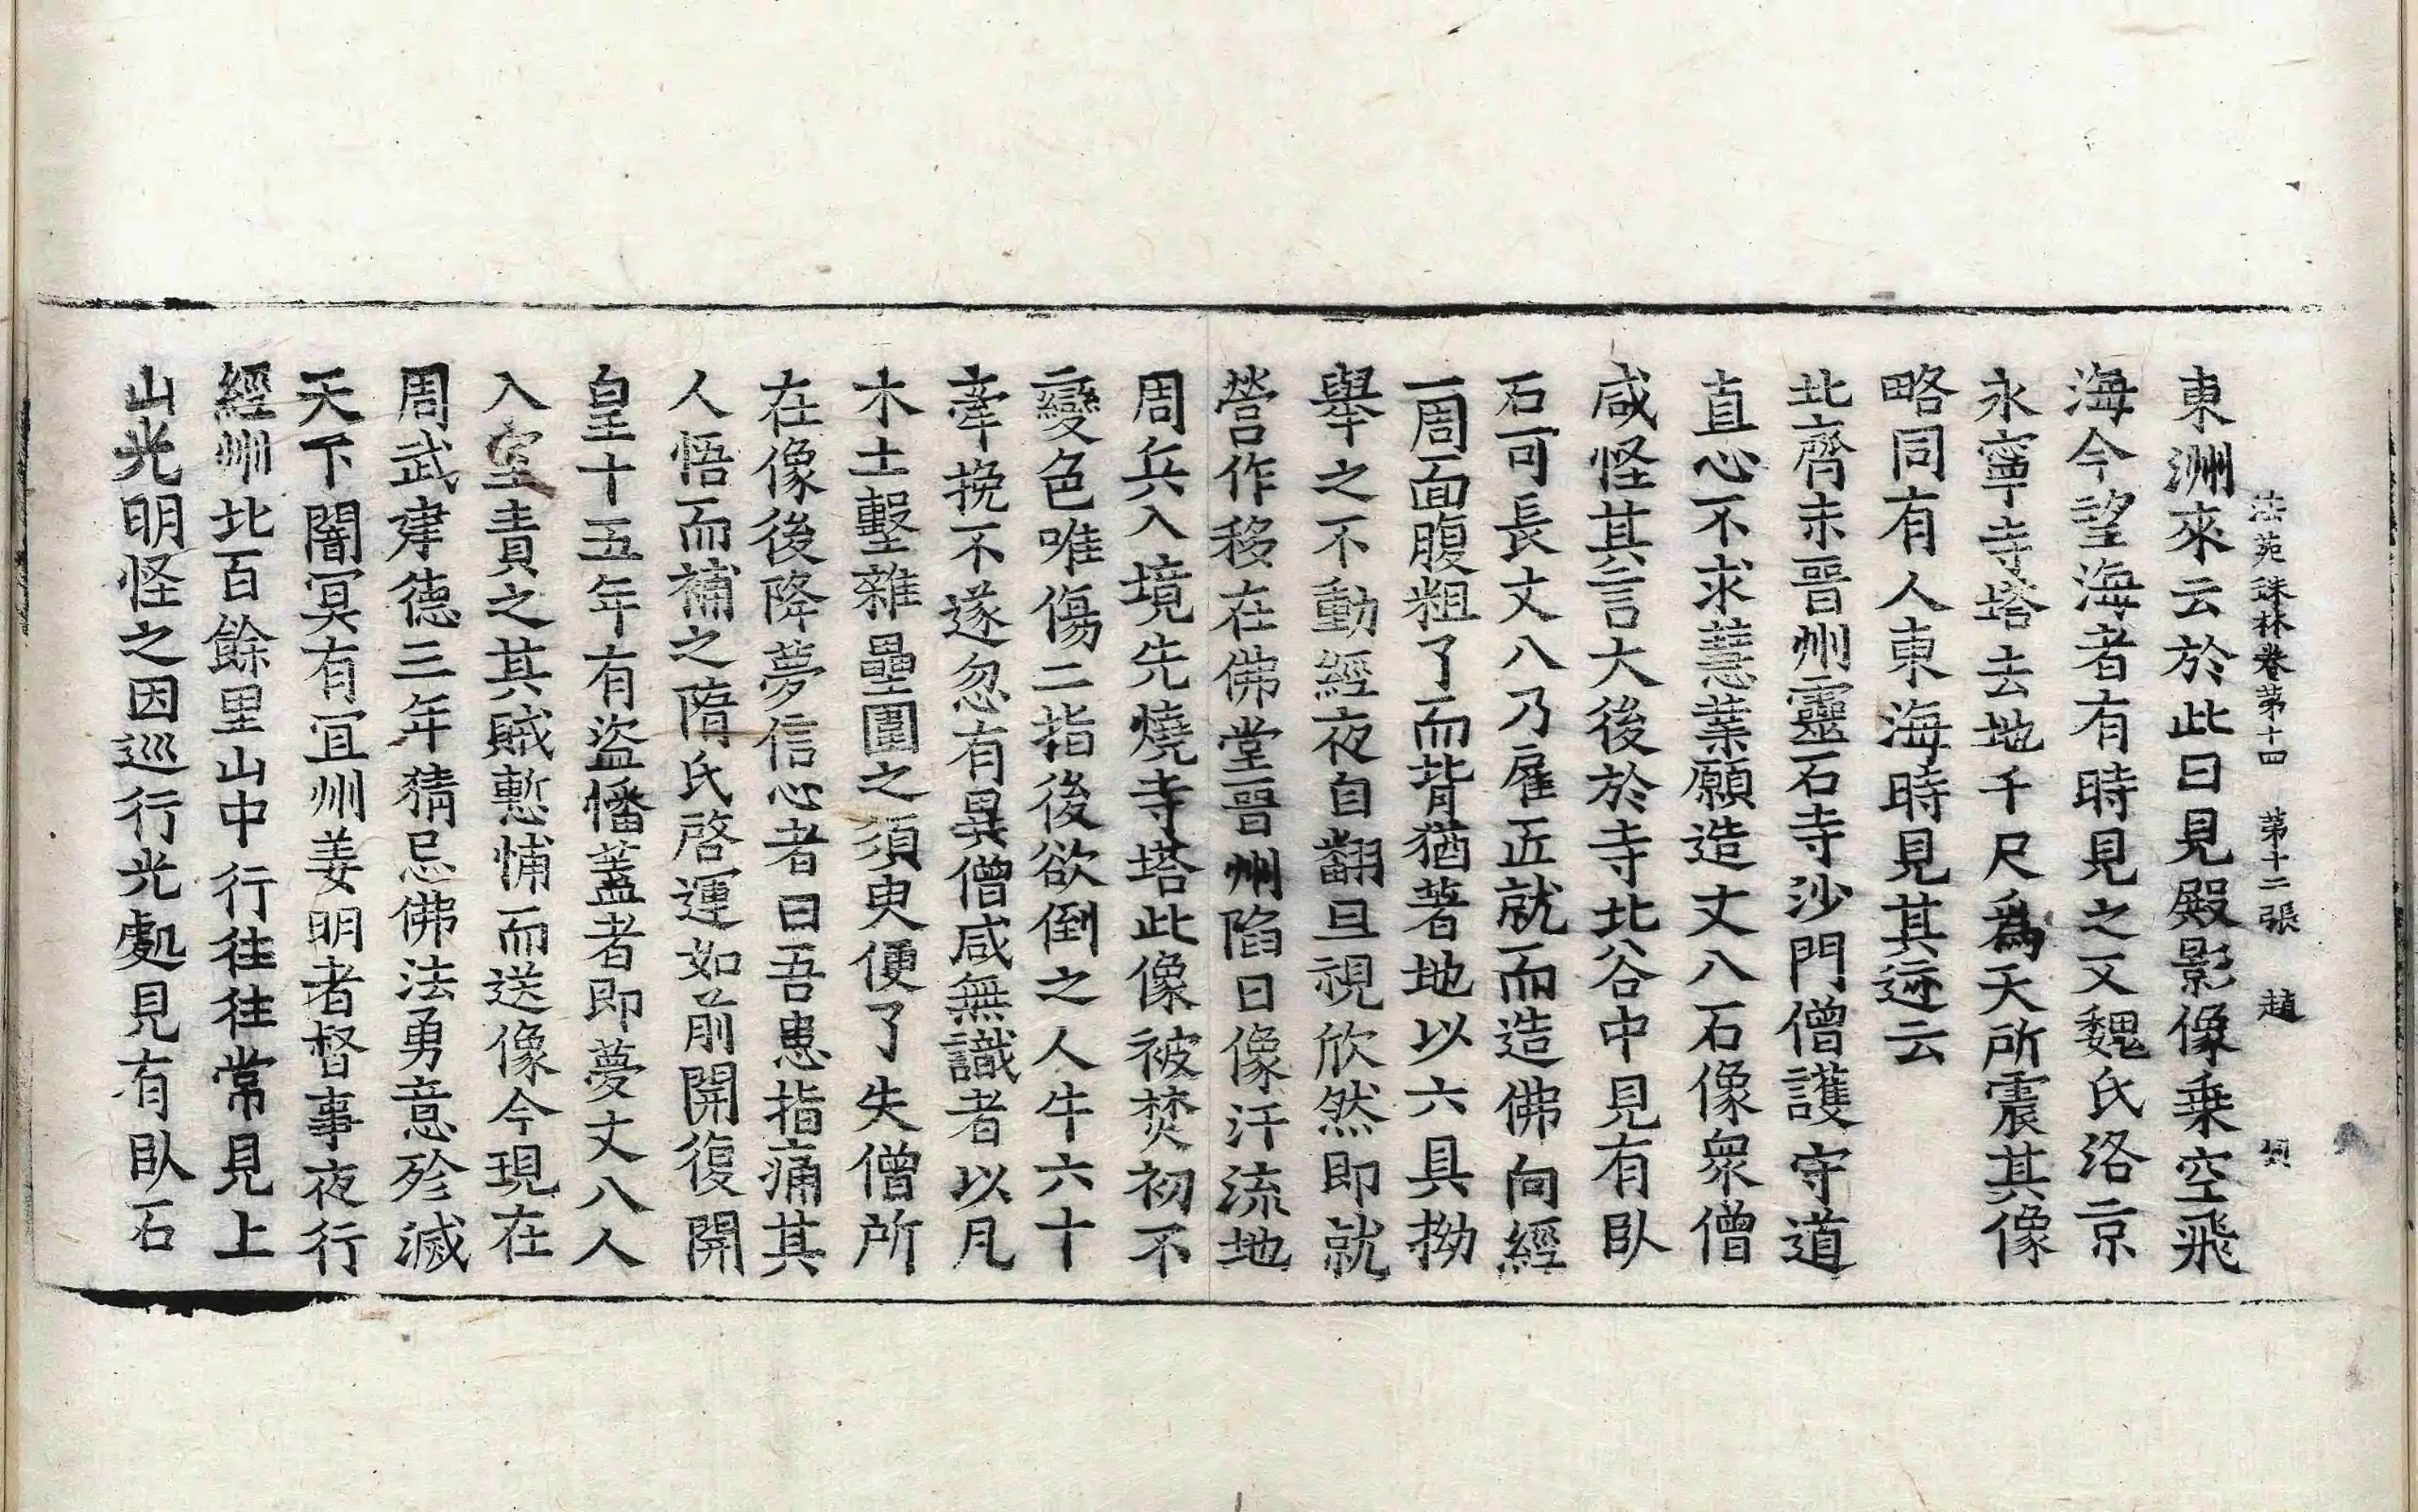 法苑珠林卷第十四　第十二張　趙
東洲來云於此日見殿影像乗空飛
海今望海者有時見之又魏氏洛京
永寧寺塔去地千尺爲天所震其像
略同有人東海時見其迹云
北齊末晉州靈石寺沙門僧護守道
直心不求慧業願造丈八石像衆僧
咸怪其言大後於寺北谷中見有臥
石可長丈八乃雇匠就而造佛向經
一周面腹粗了而背猶著地以六具拗
舉之不動經夜自翻旦視欣然即就
營作移在佛堂晉州陷日像汗流地
周兵入境先燒寺塔此像被焚初不
變色唯傷二指後欲倒之人牛六十
牽挽不遂忽有異僧咸無識者以凡
木土墼雜壘圍之須臾便了失僧所
在像後降夢信心者曰吾患指痛其
人悟而補之隋氏啓運如前開復開
皇十五年有盜幡蓋者即夢丈八人
入室責之其賊慙悑而送像今現在
周武建德三年猜忌佛法勇意殄滅
天下闇冥有宜州姜明者督事夜行
經州北百餘里山中行往往常見上
山光明怪之因巡行光處見有臥石